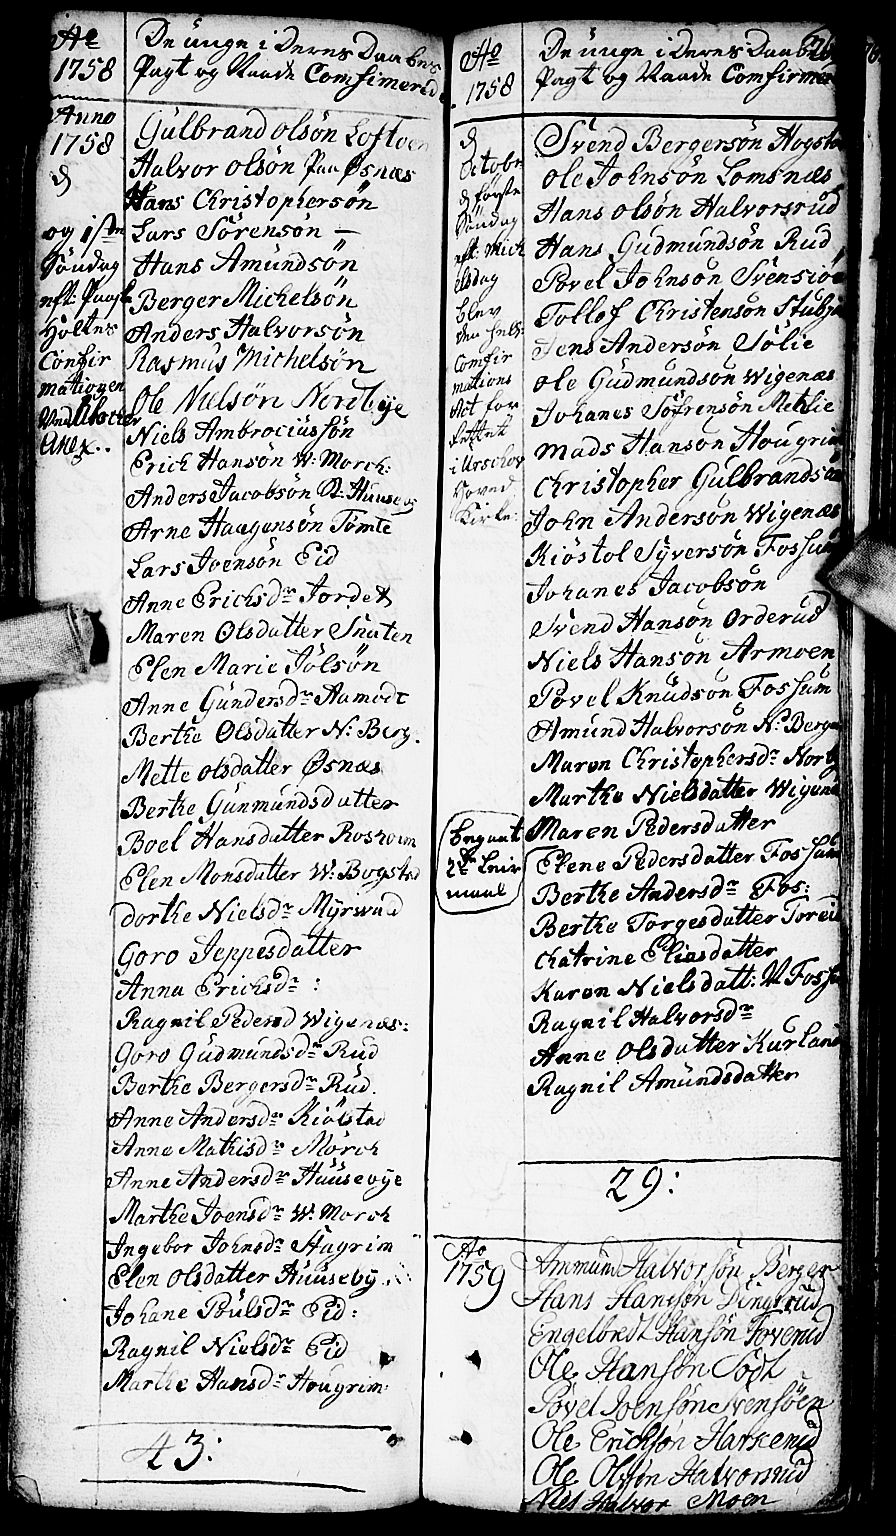 Ao
1758
De unge i Deres Daabes
Pagt og Naade Comfirmerede
Anno
1758
d
og 1ste
Søndag
eft: Paaske
Høltes
Confir
mationen
Ved
Anex..
Gulbrand olsøn Loftven
Halvor olsøn Paa Øsnæs
Hans Christophersøn
Lars Sörensøn —
Hans Amundsøn
Berger Michelsøn
Anders Halvorsøn
Rasmus Michelsøn
Ole Nielsøn Nordbye
Niels Ambrociussøn
Erich Hansøn W: Morch:
Anders Jacobsøn Huuseby
Arne Haagensøn Tömte
Lars Joensøn Eid
Anne Erichsdr Jordet
Maren Olsdatter Snaten
Elen Marie Jölsøn
Anne Gundersdr Aamodt
Berthe Olsdatter N: Berg.
Mette olsdatter Øsnæs
Berthe Gunmundsdatter
Boel Hansdatter Rosholm
Elen Monsdatter W: Bogstad
dorthe Nielsdr Myrwald
Goro Jeppesdatter
Anna Erichsdr :
Ragnil Pedersd Wigenæs:
Goro Gudmundsdr Rud
Berthe Bergersdr Rud.
Anne Andersdr Kiölstad
Anne Mathisdr Mörch
Anne Andersdr Huusebye
Marthe Joensdr W: Morch
Ingebor Johnsdr Hagrim
Elen Olsdatter Huuseby
Johane Poulsdr Eid:
Ragnil Nielsdr Eid
Marthe Hansdr Hougrim:
43:
Ao
1758
De unge i Deres Daabes
Pagt og Naade Comfirmerede
d
Octobr:
d første
Söndag
eft: Mich
elsdag
blev
den
Comfir
mations
Act for
rettet
i Urschov
Hoved
Kirke:
Svend Bergersøn Hogsto
Ole Johnsøn Lomsnæs
Hans olsøn Halvorsrud
Hans Gudmundsøn Rud
Povel Johnsøn Svensiøe
Tollof Christensøn
Jens Andersøn Sølie
ole Gudmundsøn Wigenæs
Johanes Söfrensøn
Mads Hansøn Hougrim
Christopher Gulbrandsøn
John Andersøn Wigenæs
Kiöstol Syversøn Fossum
Johanes Jacobsøn
Svend Hansøn Orderud
Niels Hansøn Armoen
Povel Knudsøn Fossum
Amund Halvorsøn N: Berger
Maren Christophersdr Norby
Marthe Nielsdatter Wigenæs
Maren Pedersdatter
Elene Pedersdatter Fossum
Berthe Andersdr Fos:
Berthe Torgesdatter
Chatrine Eliasdatter
Karen Nielsdatt: W Fossum
Ragnil Halvorsdr
Anne Olsdatter Kurland
Ragnil Amundsdatter
begaaet
2de Leier
maal
29:
Ao
1759
Ammund Halvorsøn Berger
Hans Hansøn Dingsrud
Engelbredt Hansøn Toverud
Ole Hansøn Todt
Povel Joensøn Svensøen
Ole Erichsøn Harkerud
Ole Olssøn Halvorsrud
Niels Halvor Moen